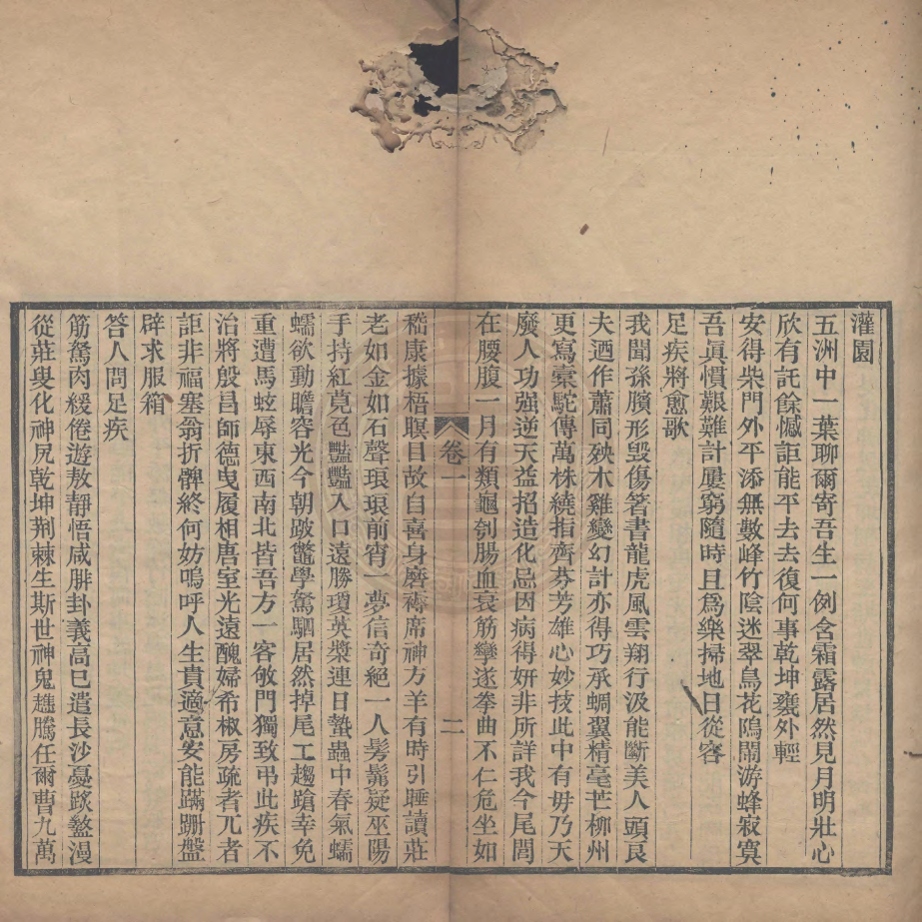 灌園
五洲中一葉聊爾寄吾生一例含霜露居然見月明壯心
欣有託餘憾詎能平去去復何事乾坤甕外輕
安得柴門外平添無數峰竹陰迷翠鳥花隖鬧游蜂寂寞
吾眞慣艱難計屢窮隨時且爲樂掃地日從容
足疾將愈歌
我聞孫臏形毀傷箸書龍虎風雲翔行汲能斷美人頭良
夫迺作蕭同殃木雞變幻計亦得巧承蜩翼精毫芒柳州
更寫橐駝傳萬株繞指齊芬芳雄心妙技此中有毋乃天
廢人功强逆天益招造化忌因病得妍非所詳我今尾閭
在腰腹一月有類龜刳腸血衰筋攣遂拳曲不仁危坐如
卷一
二
嵇康據梧瞑目故自喜身磨裀席神方羊有時引睡讀莊
老如金如石聲琅琅前宵一夢信奇絕一人髣髴疑巫陽
手持紅莧色豔豔入口遠勝瓊英漿連日蟄蟲中春氣蠕
蠕欲動瞻容光今朝跛鼈學駑駟居然掉尾工趨蹌幸免
重遭馬蚿辱東西南北皆吾方一客敂門獨致弔此疾不
治將殷昌師德曳履相唐室光遠醜婦希椒房疏者兀者
詎非福塞翁折髀終何妨嗚呼人生貴適意安能蹣跚盤
辟求服箱
答人問足疾
筋駑肉緩倦遊敖靜悟咸腓卦義高巳遣長沙憂踆盭漫
從莊叟化神尻乾坤荆棘生斯世神鬼趫騰任爾曹九萬